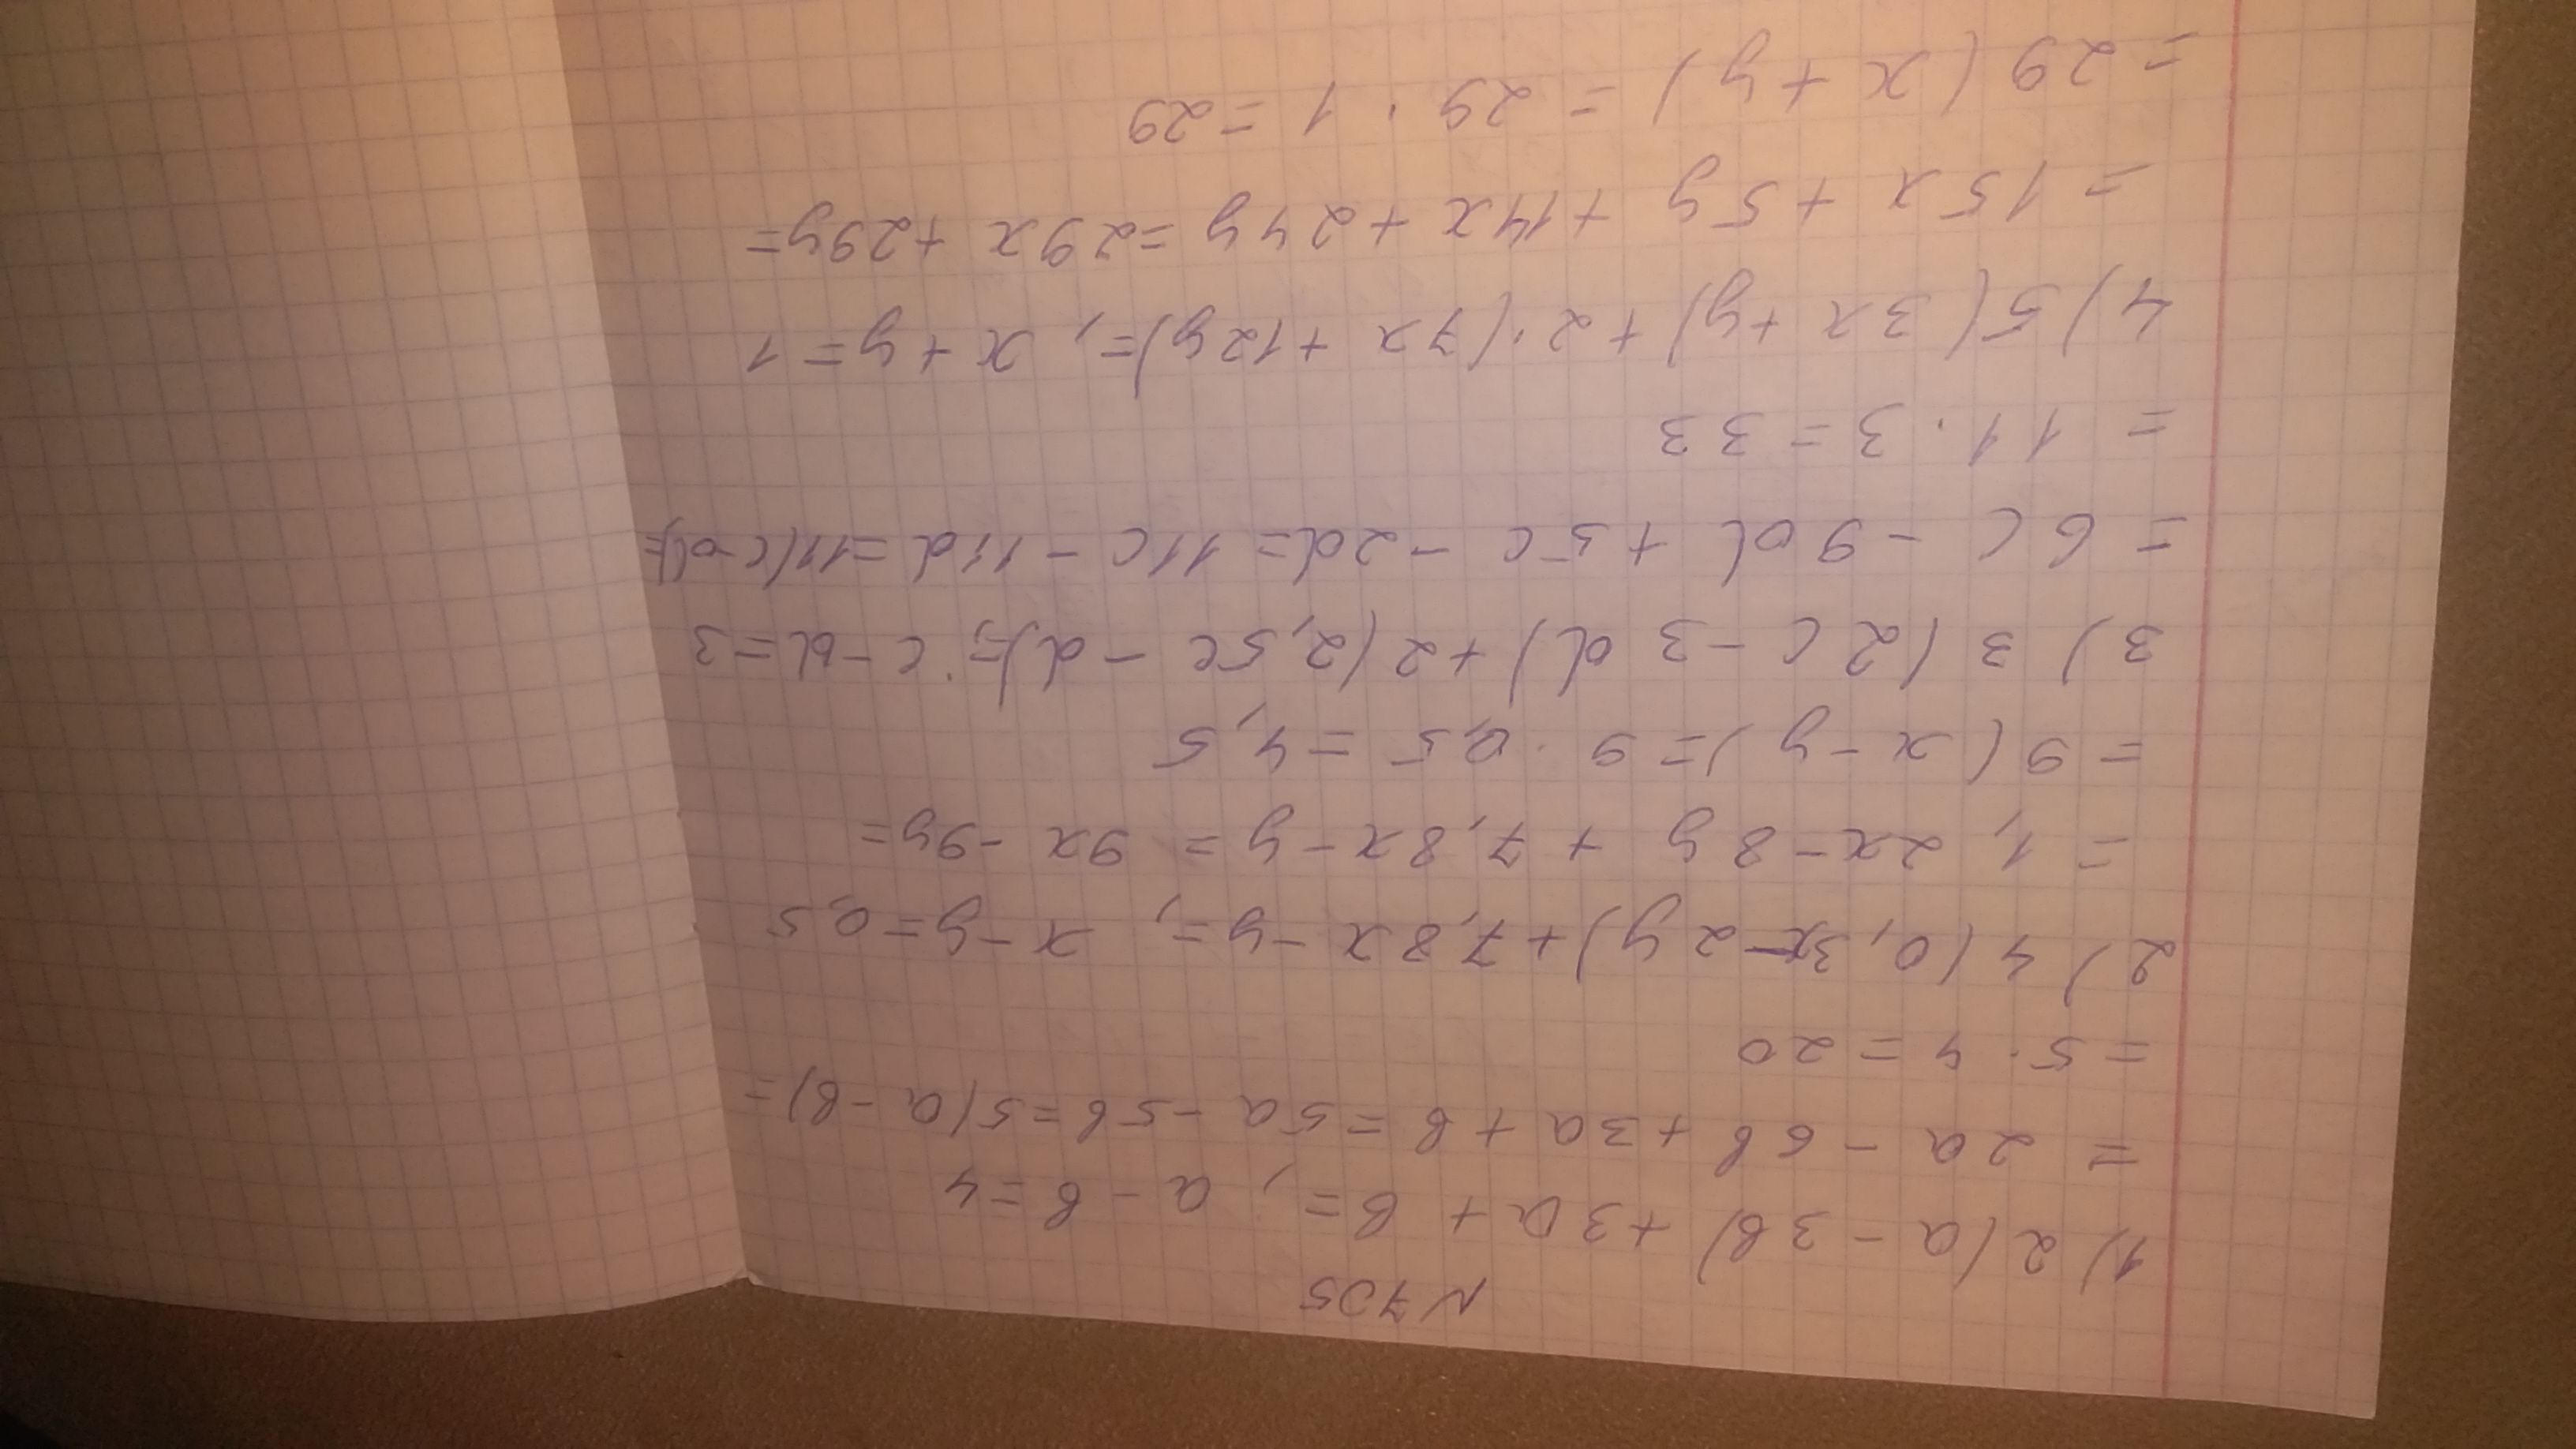 N 705
1) 2(a - 3b) + 3a + b =, a - b = 4
= 2a - 6b + 3a + b = 5a - 5b = 5(a - b) =
= 5 · 4 = 20
2) 4(0,3x - 2y) + 7,8x - y =, x - y = 0,5
= 1,2x - 8y + 7,8x - y = 9x - 9y =
= 9(x - y) = 9 · 0,5 = 4,5
3) 3(2c - 3d) + 2(2,5c - d) =, c - d = 3
= 6c - 9d + 5c - 2d = 11c - 11d = 11(c - d) =
= 11 · 3 = 33
4) 5(3x + y) + 2·(7x + 12y) =, x + y = 1
= 15x + 5y + 14x + 24y = 29x + 29y =
= 29(x + y) = 29 · 1 = 29